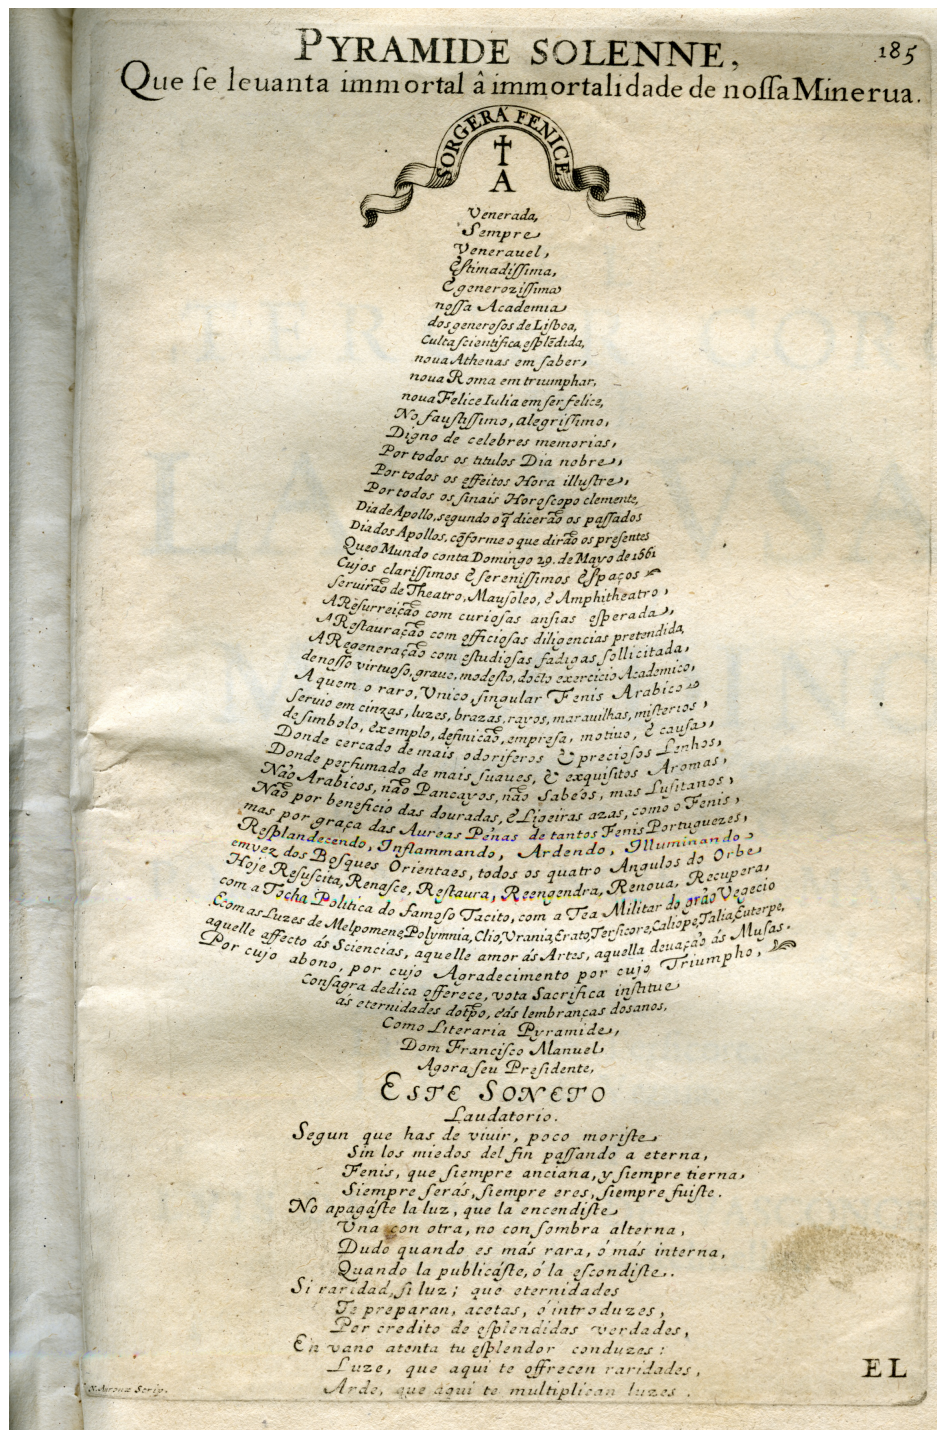 PYRAMIDE SOLENNE,
185
Que se leuanta immortal â immortalidade de nossa Minerua.
SORGERÁ FENICE,
A
Venerada,
Sempre
Venerauel,
Estimadissima,
E generozissima
nossa Academia
dos generosos de Lisboa,
Culta scientifica esplēdida,
noua Athenas em saber,
noua Roma em triumphar,
noua Felice Iulia em ser felice,
No faustissimo, alegrissimo,
Digno de celebres memorias,
Por todos os titulos Dia nobre,
Por todos os effeitos Hora illustre,
Por todos os sinais Horoscopo clemente,
Dia de Apollo, segundo o q̃ dicerão os passados
Dia dos Apollos, cõforme o que dirão os presentes
Que o Mundo conta Domingo 29. de Mayo de 1661
Cujos clarissimos E serenissimos Espaços
seruirão de Theatro, Mausoleo, e Amphitheatro,
A Resurreição com curiosas ansias esperada,
A Restauração com officiosas diligencias pretendida,
A Regeneração com estudiosas fadigas sollicitada,
de nosso virtuoso, graue, modesto, docto exercicio Academico,
A quem o raro, Vnico, singular Fenis Arabico
seruio em cinzas, luzes, brazas, rayos, marauilhas, misterios,
de simbolo, exemplo, definicão, empresa, motiuo, E causa,
Donde cercado de mais odoriferos E preciosos Lenhos,
Donde perfumado de mais suaues, E exquisitos Aromas,
Não Arabicos, não Pancayos, não Sabeos, mas Lusitanos,
Não por beneficio das douradas, e Ligeiras azas, como o Fenis,
mas por graça das Aureas Pēnas de tantos Fenis Portuguezes,
Resplandecendo, Inflammando, Ardendo, Illuminando
em vez dos Bosques Orientaes, todos os quatro Angulos do Orbe
Hoje Resuscita, Renasce, Restaura, Reengendra, Renoua, Recupera,
com a Tocha Politica do famoso Tacito, com a Tea Militar do grão Vegecio
E com as Luzes de Melpomene, Polymnia, Clio, Vrania, Erato, Tersicore, Caliope, Talia, Euterpe,
aquelle affecto ás Sciencias, aquelle amor ás Artes, aquella deuação ás Musas.
Por cujo abono, por cujo Agradecimento por cujo Triumpho,
Consagra dedica offerece, vota Sacrifica institue
as eternidades do tpõ, e ás lembranças dos anos,
Como Literaria Pyramide,
Dom Francisco Manuel
Agora seu Presidente,
ESTE SONETO
Laudatorio.
Segun que has de viuir, poco moriste
Sin los miedos del fin passando a eterna,
Fenis, que siempre anciana, y siempre tierna,
Siempre serás, siempre eres, siempre fuiste.
No apagáste la luz, que la encendiste
Vna con otra, no con sombra alterna,
Dudo quando es más rara, ó más interna,
Quando la publicáste, ó la escondiste.
Si raridad, si luz; que eternidades
Te preparan, acetas, ó introduzes,
Por credito de esplendidas verdades,
En vano atenta tu esplendor conduzes:
Luze, que aqui te offrecen raridades,
Arde, que aqui te multiplican luzes.
EL